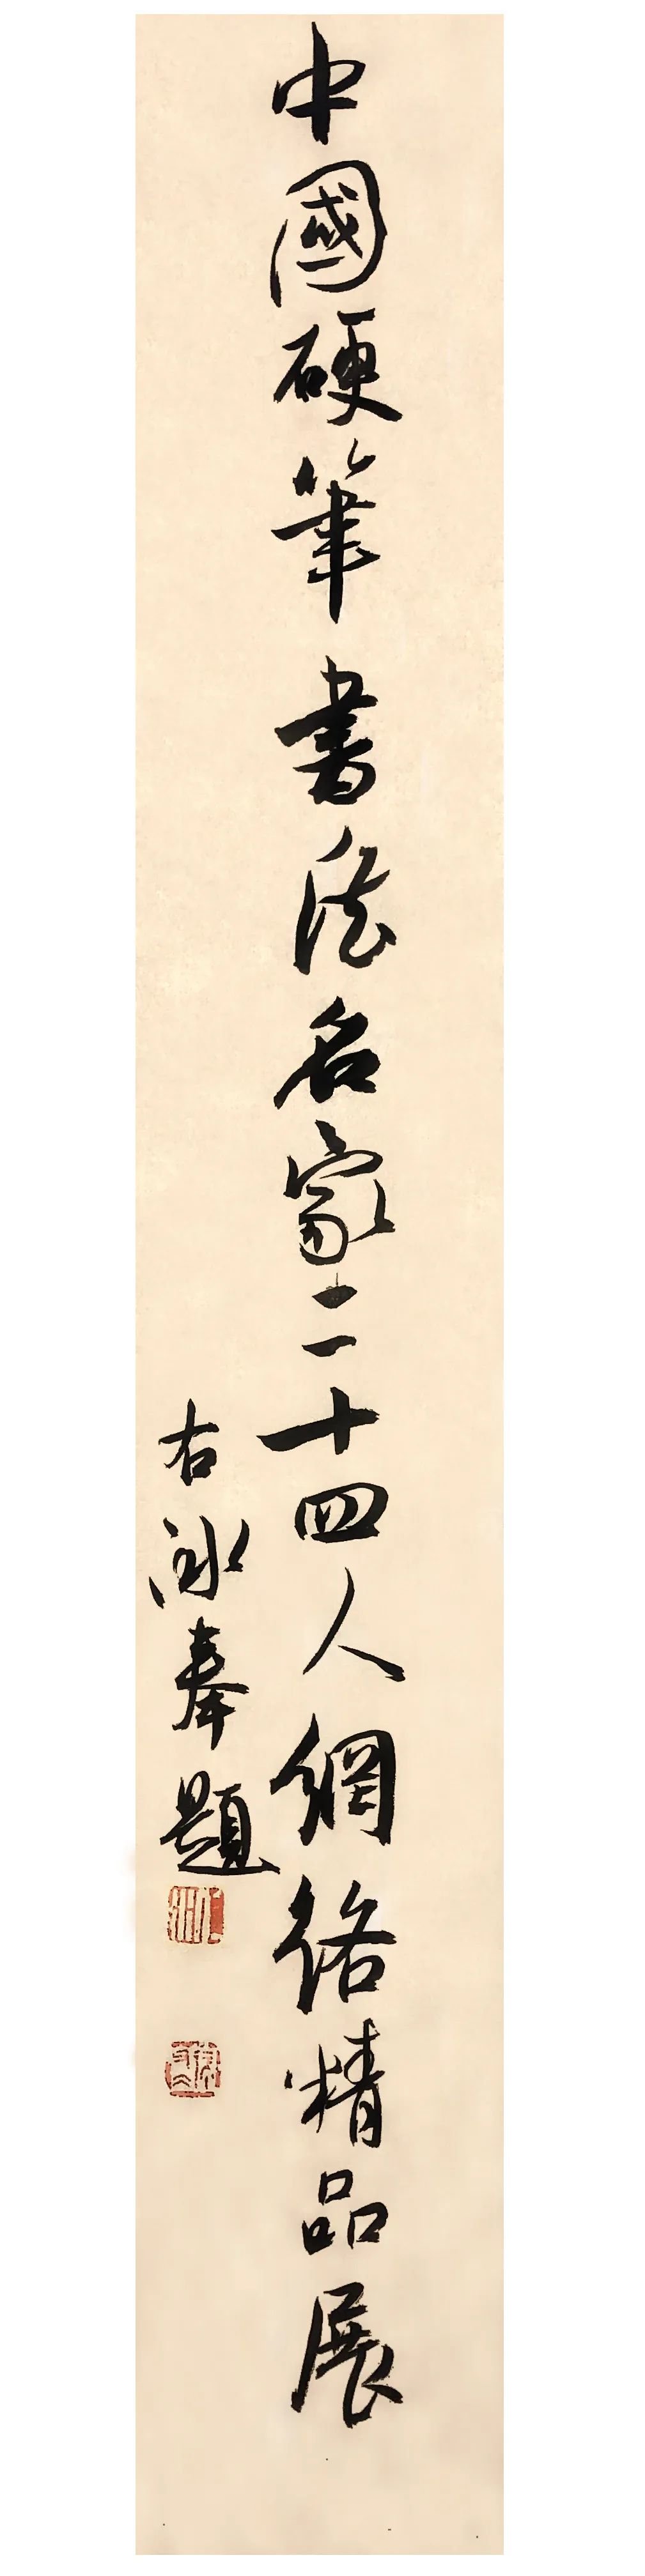 中國硬筆書法名家二十四人網絡精品展
右泳奉題